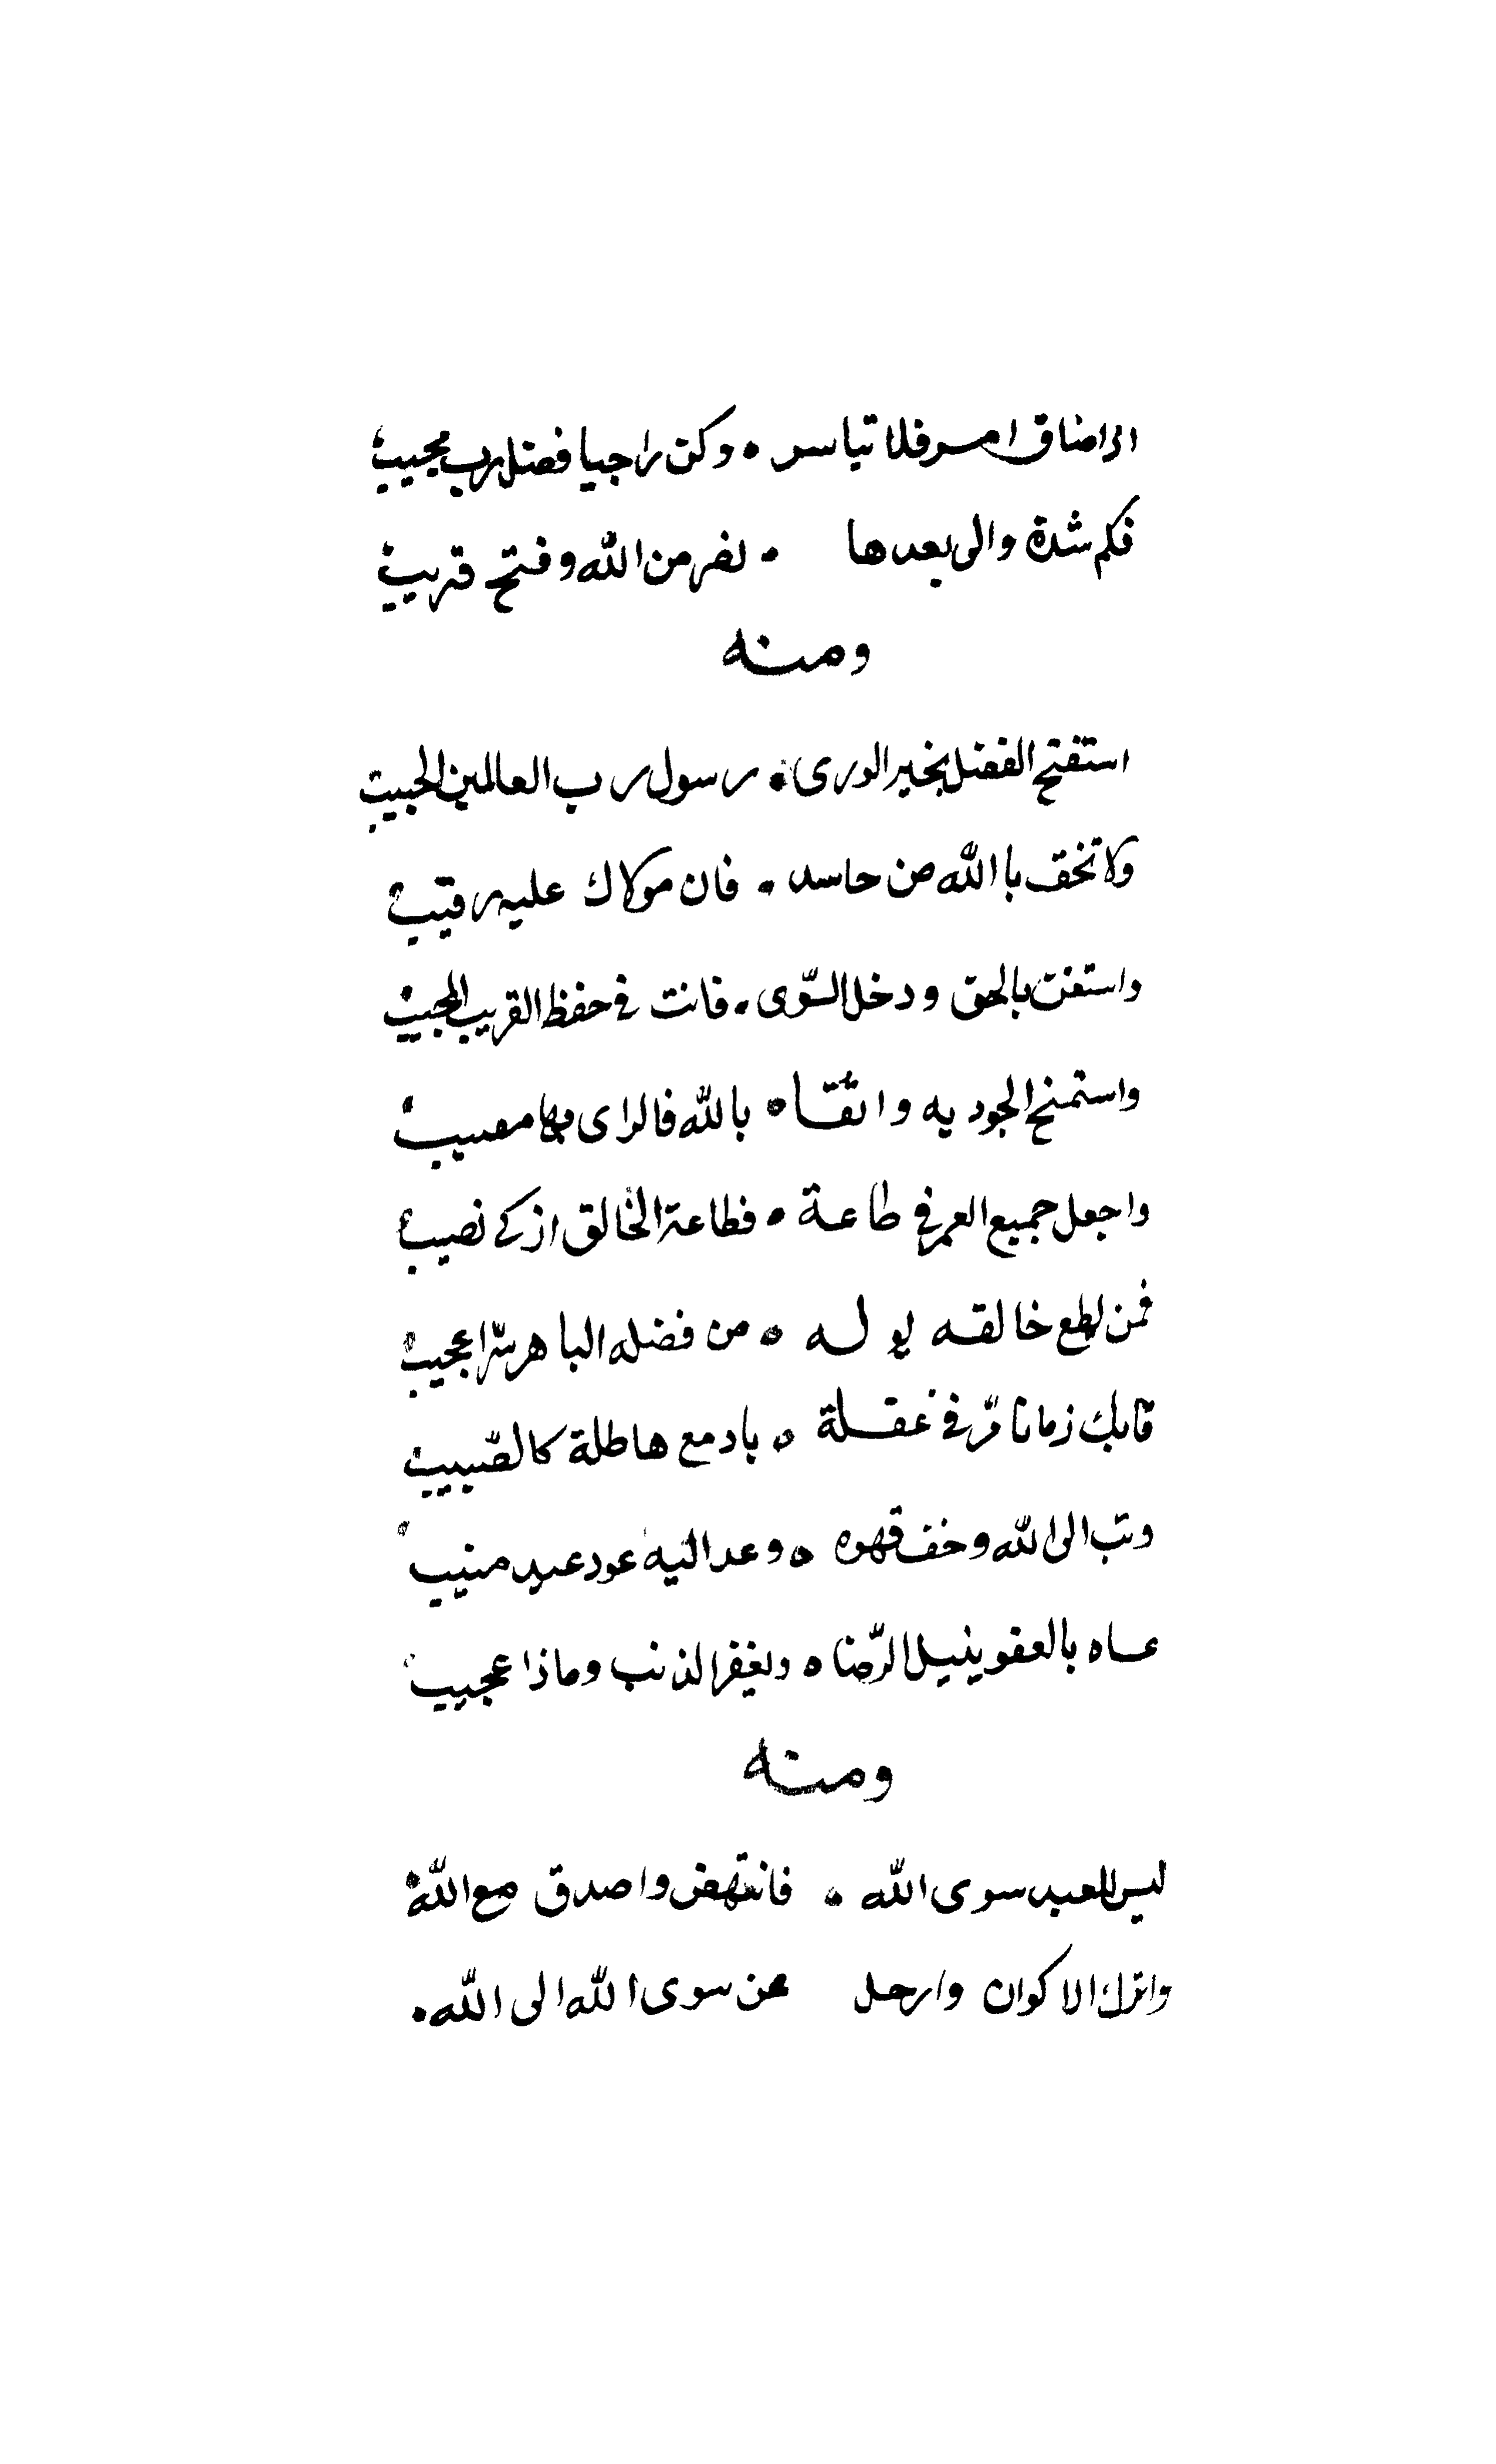 اذا ضاق امر فلا تياس • وكن راجيا فضل رب مجيب
فكم شدة والى بعدها • نصر من الله وفتح قريب
ومنه
استفتح الفضل بخير الورى • رسول رب العالمين الحبيب
ولا تخف با الله من حاسد • فان مولاك عليه رقيب
واستغن بالحق ودخل السّوى • فانت في حفظ القريب المجيب
واستمنح الجود به واتقاه بالله فالراى مصيب
واجعل جميع العمر في طاعة • فطاعة الخالق ازكى نصيب
فمن يطع خالقه يوله • من فضله الباهر سّرا عجيب
فابك زمانا مرّ في غفلة • بادمع هاطلة كالصّبيب
وتب الى الله وخف قهره • وعد اليه عود عبد منيب
عساه بالعفو ينيل الرّضا • ويغفر الذنب وماذا عجيب
ومنه
ليس للعبد سوى الله • فانتهض واصدق مع الله
واترك الاكوان وارحل عن سوى الله الى الله •